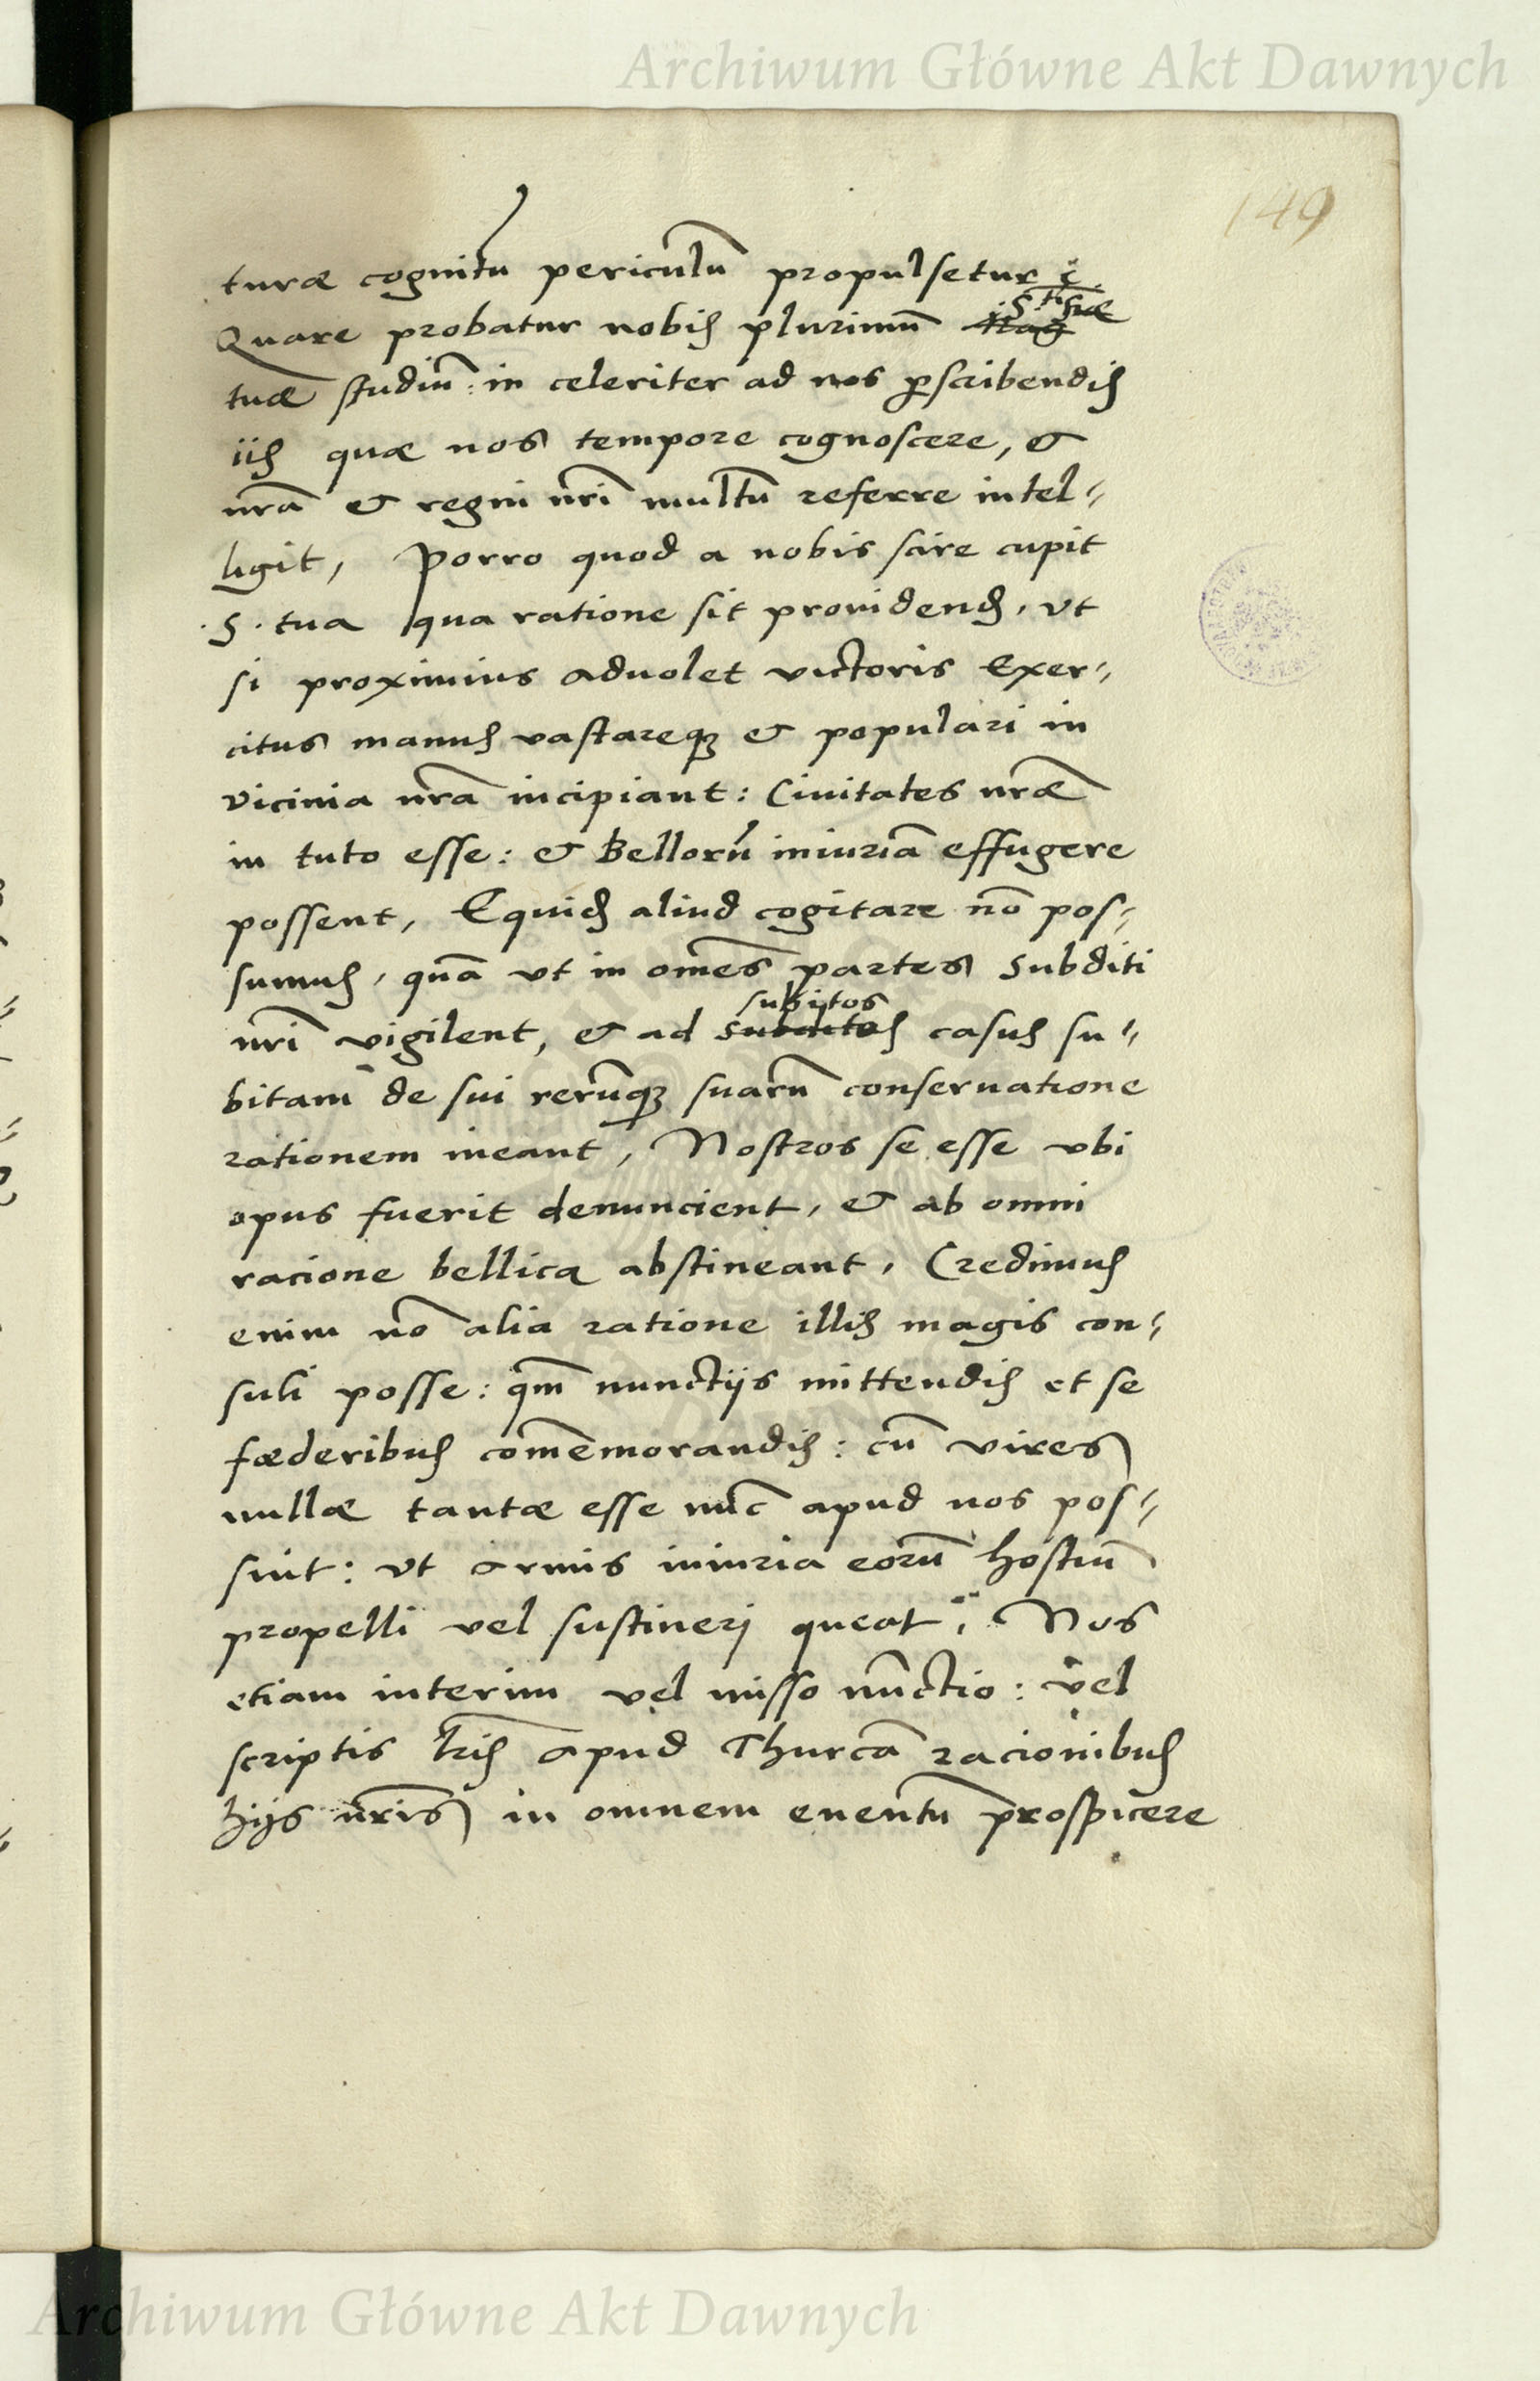 Archiwum Główne Akt Dawnych
149
turæ cognitu periculũ propulsetur
Quare probatur nobis plurimũ S.tis suæ
tuæ studiũ: in celeriter ad nos ꝑscribendis
iis quæ nos tempore cognoscere, &
nrã & regni nrĩ multũ referre intel-
ligit, Porro quod a nobis scire cupit
.S. tua qua ratione sit prouidend, vt
si proximius aduolet victoris Exer-
citus manus vastareqꝫ & populari in
vicinia nrã incipiant: Ciuitates nræ̃
in tuto esse: & Bellorũ iniuriã effugere
possent, Equid aliud cogitare nõ pos-
sumus, quã vt in om̃es partes subditi
nrĩ vigilent, & ad subitos casus su-
bitam de sui rerũqꝫ suarũ conseruatione
rationem ineant, Nostros se esse vbi
opus fuerit denuncient, & ab omni
racione bellica abstineant, Credimus
enim nõ alia ratione illis magis con-
suli posse: qm̃ nunctijs mittendis et se
fœderibus com̃emorandis: cũ vires
nullæ tantæ esse nũc apud nos pos-
sint: vt armis iniuria eorũ hostiũ
propelli vel sustinerj queat, Nos
etiam interim vel misso nũctio: vel
scriptis lr̃is apud Thurcã racionibus
hijs nrĩs in omnem euentũ prospicere
Archiwum Główne Akt Dawnych